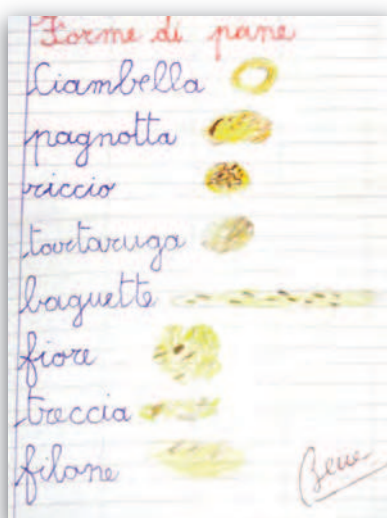 Forme di pane
Ciambella
pagnotta
riccio
tartaruga
baguette
fiore
treccia
filone
Bene